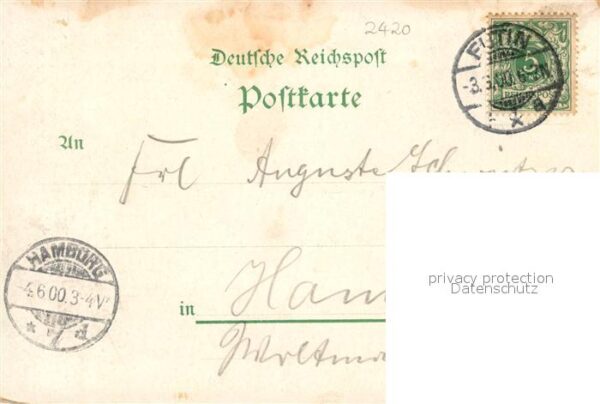 2420
Deutsche Reichspost
Postkarte
EUTIN
An
Frl Auguste
HAMBURG
4.6.00.3-4V.
in
privacy protection
Datenschutz